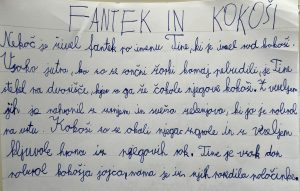 FANTEK IN KOKOŠI
Nekoč je živel fantek po imenu Tine, ki je imel rad kokoši.
Vsako jutro, ko so se sončni žarki komaj prebudili, je Tine
stekel na dvorišče, kjer so ga že čakale njegove kokoši. Z veseljem
jih je nahranil s zrnjem in svežo zelenjavo, ki jo je nabral
na vrtu. Kokoši so se zbrali njega in z veseljem
kljuvale hrano iz njegovih rok. Tine je vsak dan
nabiral kokošja jajca, mama je iz njih naredila palačinke.